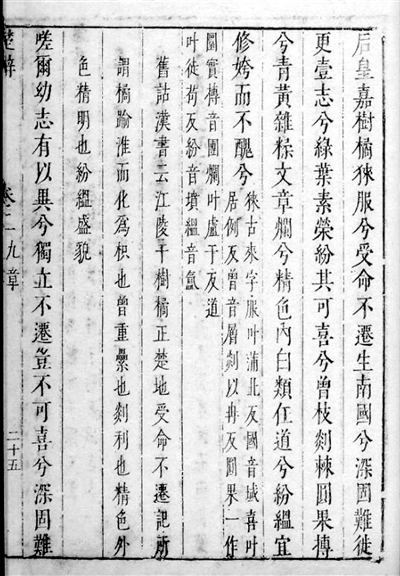 后皇嘉樹橘徠服兮受命不遷生南國兮深固難徙
更壹志兮綠葉素榮紛其可喜兮曾枝剡棘圓果摶
兮青黃雜糅文章爛兮精色內白類任道兮紛緼宜
修姱而不醜兮
徠古來字服叶蒲北反國音域喜叶
居例反曾音層剡以冉反圓果一作
圜實摶音團爛叶盧干反道
叶徒苟反紛音墳緼音氲
舊詁漢書云江陵千樹橘正楚地受命不遷記所
謂橘踰淮而化為枳也曾重纍也剡利也精色外
色精明也紛緼盛貌
嗟爾幼志有以異兮獨立不遷豈不可喜兮深固難
楚辭 卷二 九章 二十五